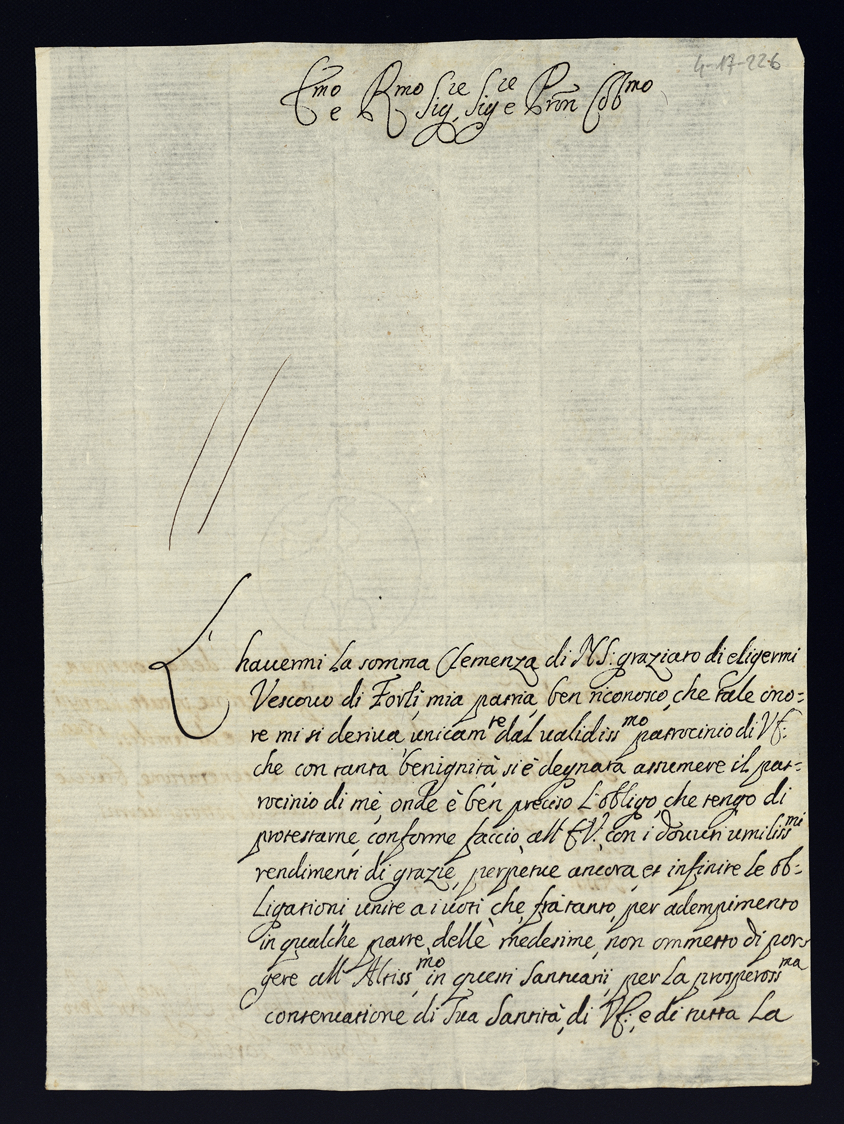 4-17-226
Emo e Rmo Sigre, Sigre e Pron Colmo
L' havermi la somma Clemenza di NS: graziato di eligermi
Vescovo di Forlì mia patria, ben riconosco, che tale ono=
re mi si deriva unicamte dal validissmo patrocinio di VE:
che con tanta benignità si è degnata assumere il pat=
rocinio di mè, onde è ben preciso l'obligo, che tengo di
protestarne, conforme faccio all' EV. con i doveri umilissmi
rendimenti di grazie, perpetue ancora, et infinite le ob=
ligationi, unite a i voti che frà tanto, per adempimento
in qualche parte delle medesime, non ommetto di por=
gere all' Altissmo in questi Santuarii, per la prosperossma
conservatione di Sua Santità, di VE:, e di tutta la